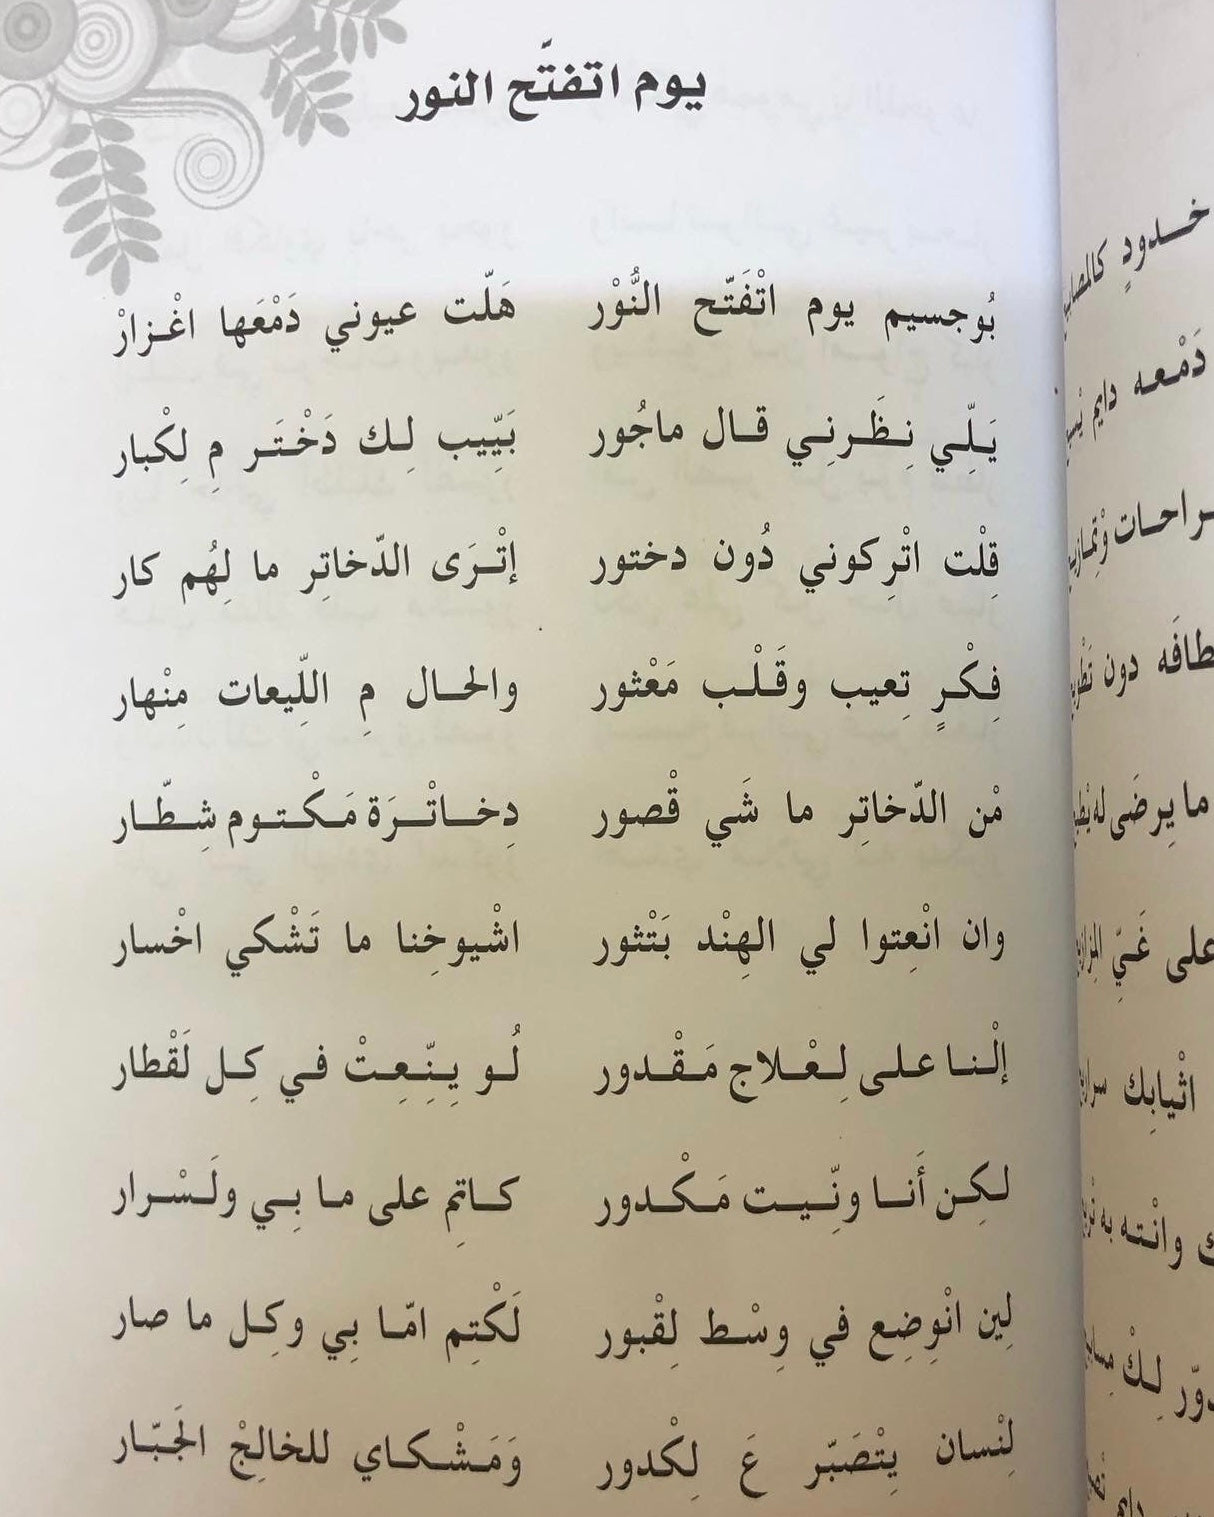 يوم اتفتَّح النور
بُوجسيم يوم اتْفَتّح النُّوْر هَلّت عيوني دَمْعَها اغْزارْ
يَلِّي نِظَرنِي قال ماجُور بَيِّيب لِك دَخْتَر مِ لِكْبار
قِلْت اتْرِكوني دُون دختور إتْرَى الدّخاتِر ما لِهُم كار
فِكْرٍ تِعيب وقَلْب مَعْثور والحال مِ اللِّيعات مِنْهار
مْن الدّخاتِر ما شَي قْصور دِخاتْرَة مَكْتوم شِطّار
وان انْعِتوا لي الهِنْد بَتْثور اشْيوخِنا ما تَشْكي اخْسار
إلْنا على لِعْلاج مَقْدور لُو يِنّعِتْ في كِل لَقْطار
لكِن أَنا ونِّيت مَكْدور كاتِم على ما بِي ولَسْرار
لِين انْوِضِع في وِسْط لِقْبور لَكْتِم امّا بِي وكِل ما صار
لِنْسان يِتْصَبّر عَ لِكْدور وَمَشْكاي للخالِجْ الجَبّار
خدودٍ
دَمْعه دايم
طافَه دون
ما يِرضَى له
على غَيّ
اثْيابِك
وانْته به
لِكْ